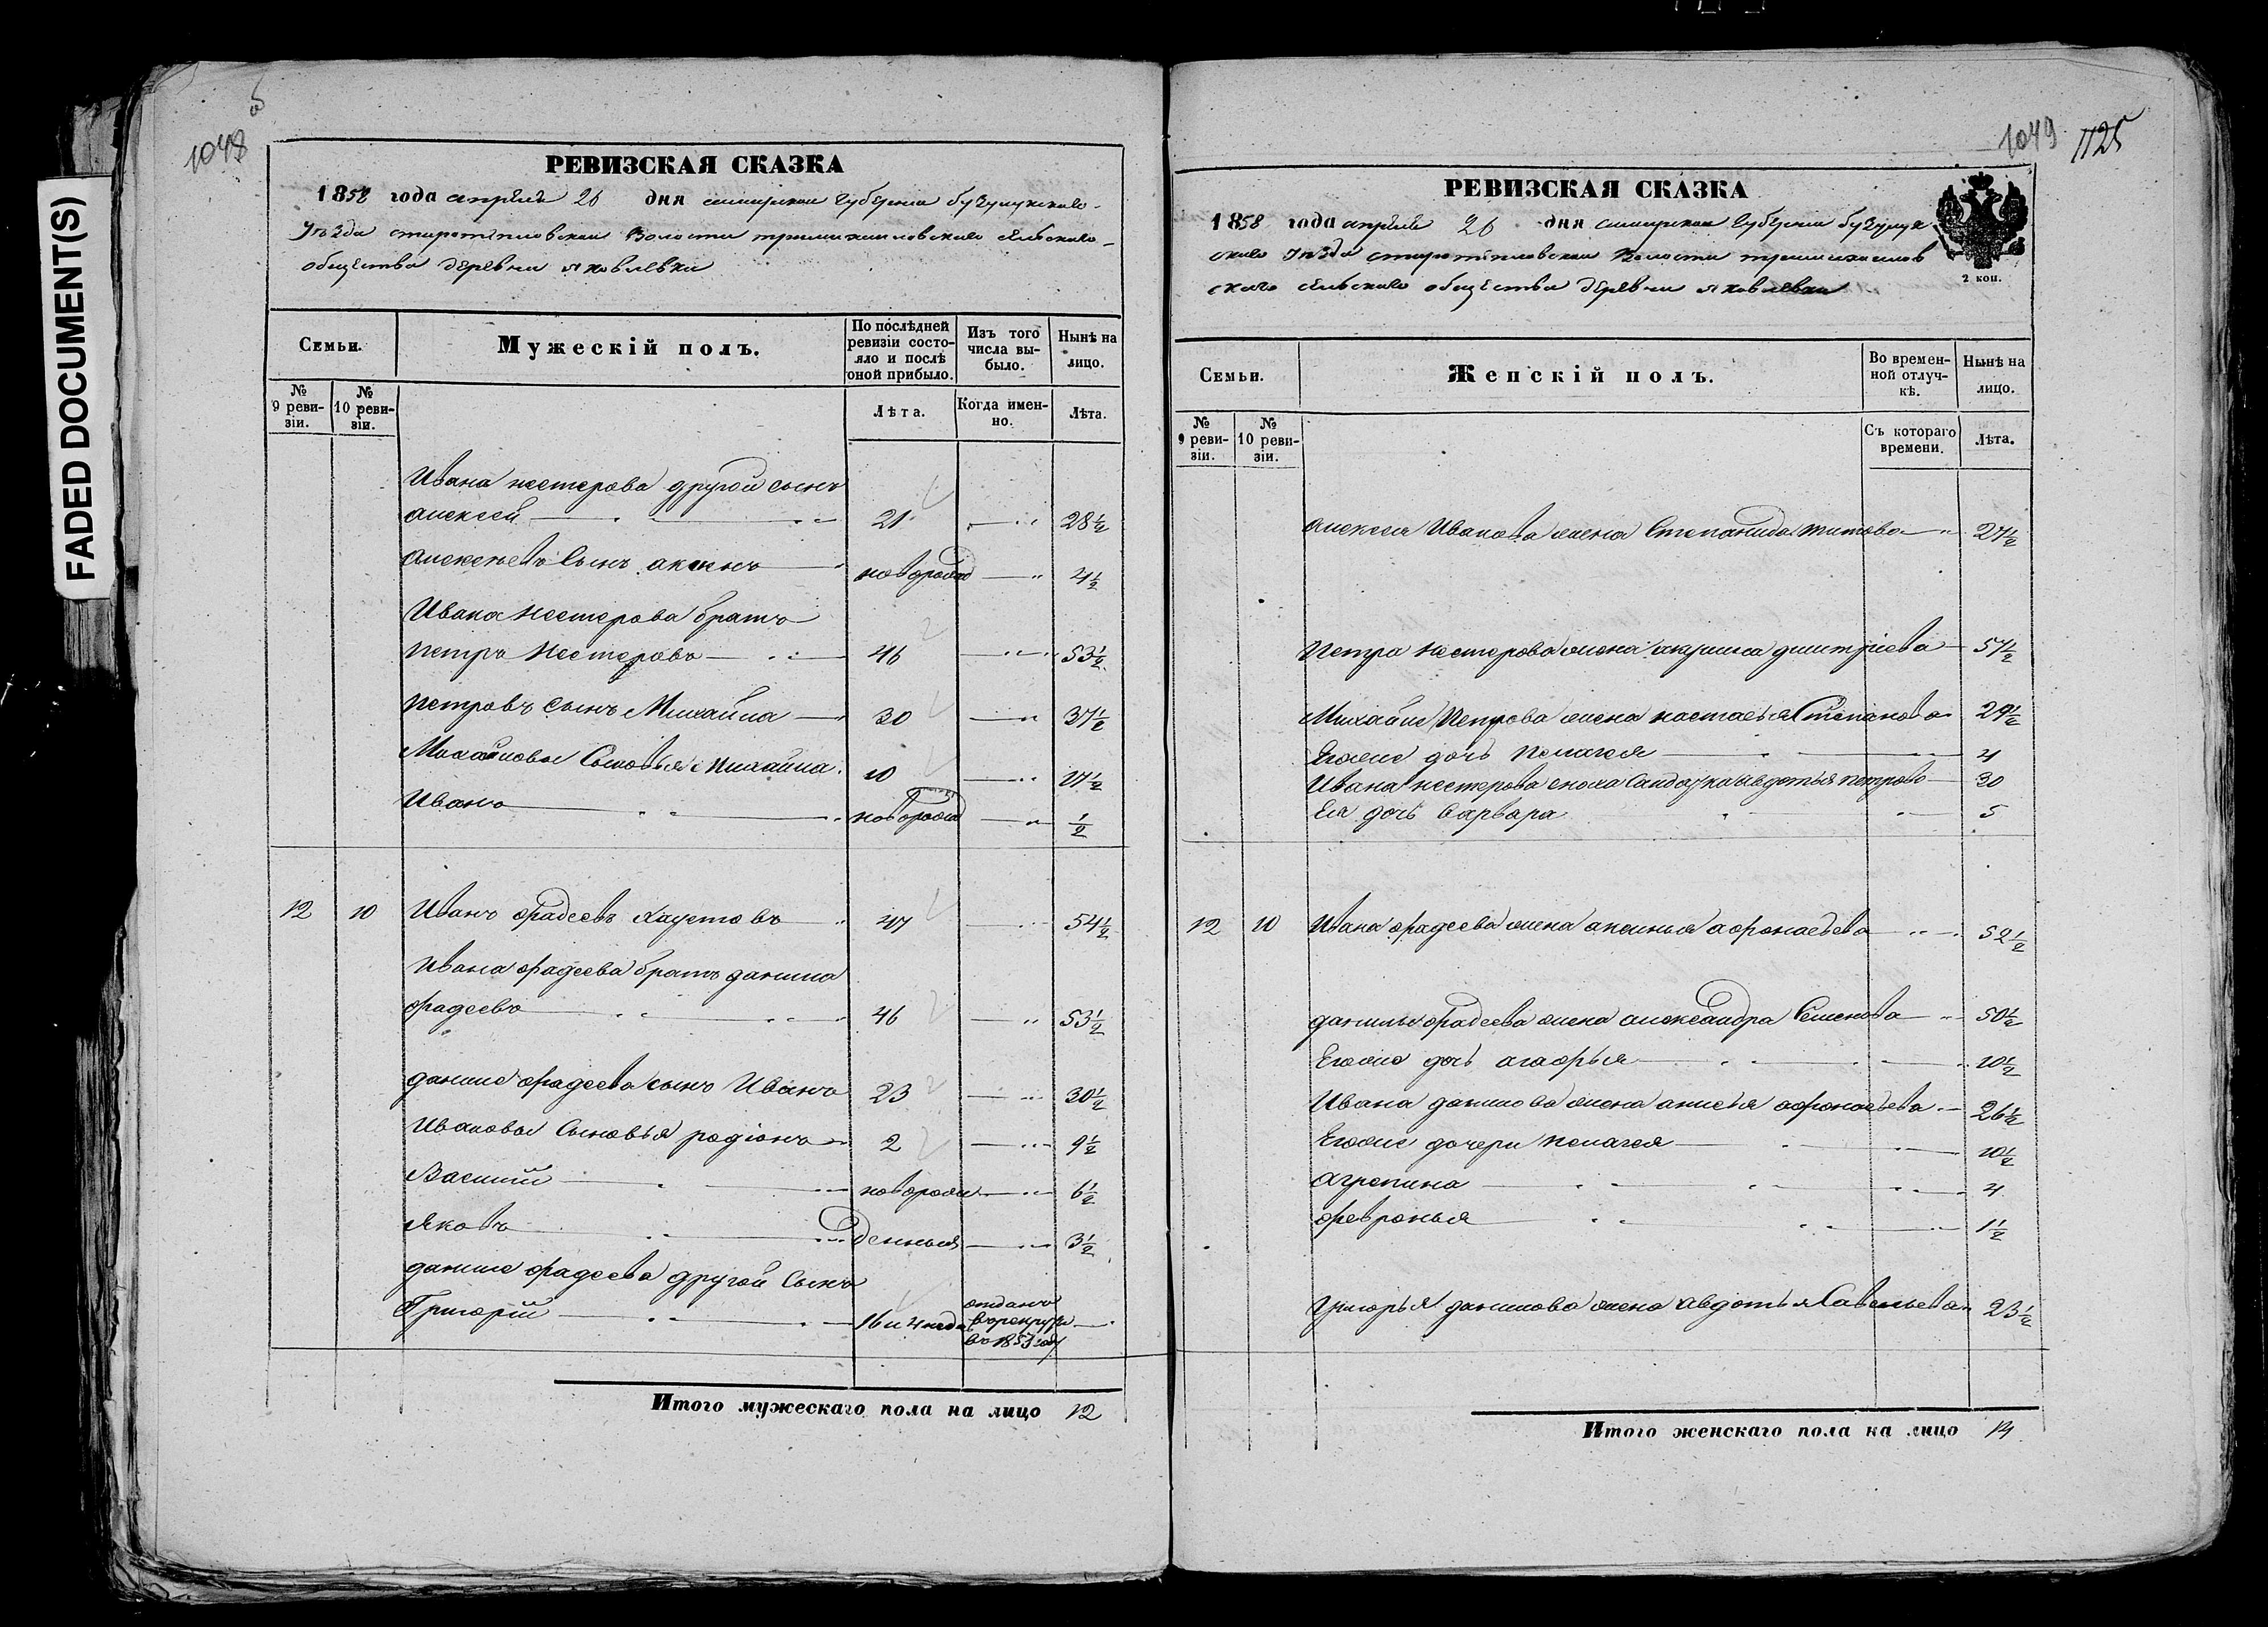 FADED DOCUMENT(S)
1048
РЕВИЗСКАЯ СКАЗКА
1858 года апреля 26 дня самарской губернии бузулукскаго
уезда старотепловской волости сельскаго
общества деревни яковлевки
Семьи.
Мужескій полъ.
По послѣдней ревизіи состояло и послѣ оной прибыло.
Изъ того числа выбыло.
Нынѣ на лицо.
№ 9 ревизіи.
№ 10 ревизіи.
Лѣта.
Когда именно.
Лѣта.
Ивана нестерова другой сынъ
алексей 21 28½
алексеевъ сынъ новорожд 4½
Ивана Нестерова братъ
петръ Нестеровъ 46 53½
петровъ сынъ Михайла 30 37½
Михайловы Сыновья Михайла 10 17½
Иванъ новорожд ½
12 10 Иванъ фадеевъ хаустовъ 47 54½
Ивана фадеева братъ данила
фадеевъ 46 53½
данилы фадеева сынъ Иванъ 23 30½
Ивановы Сыновья родіонъ 2 9½
Василій новорож 6½
Яковъ денныя 3½
данилы фадеева другой Сынъ
Григорій 16 и 4 отданъ
в рекруты
во 1853 году
Итого мужескаго пола на лицо 12
1049 1125
РЕВИЗСКАЯ СКАЗКА
1858 года апреля 26 дня самарской губернии бузулук
скаго уезда старотепловской волости
скаго сельскаго общества деревни яковлевки
2 коп.
Семьи.
Женскій полъ.
Во временной отлучкѣ.
Нынѣ на лицо.
№ 9 ревизіи.
№ 10 ревизіи.
Съ котораго времени.
Лѣта.
алексея Иванова жена Степанида титова 27½
Петра нестерова жена акулина дмитріева 57½
Михайлы Петрова жена настасья Степанова 29½
Егоже дочь пелагея 4
Ивана нестерова сноха Солдатка авдотья петрова 30
Ея дочь варвара 5
12 10 Ивана фадеева жена аксинья афонасьева 52½
данилы фадеева жена александра Семенова 50½
Егоже дочь агафья 10½
Ивана данилова жена анисья афонасьева 26½
Егоже дочери пелагея 10½
агрепина 4
февронья 1½
григорья данилова жена авдотья Савельева 23½
Итого женскаго пола на лицо 14